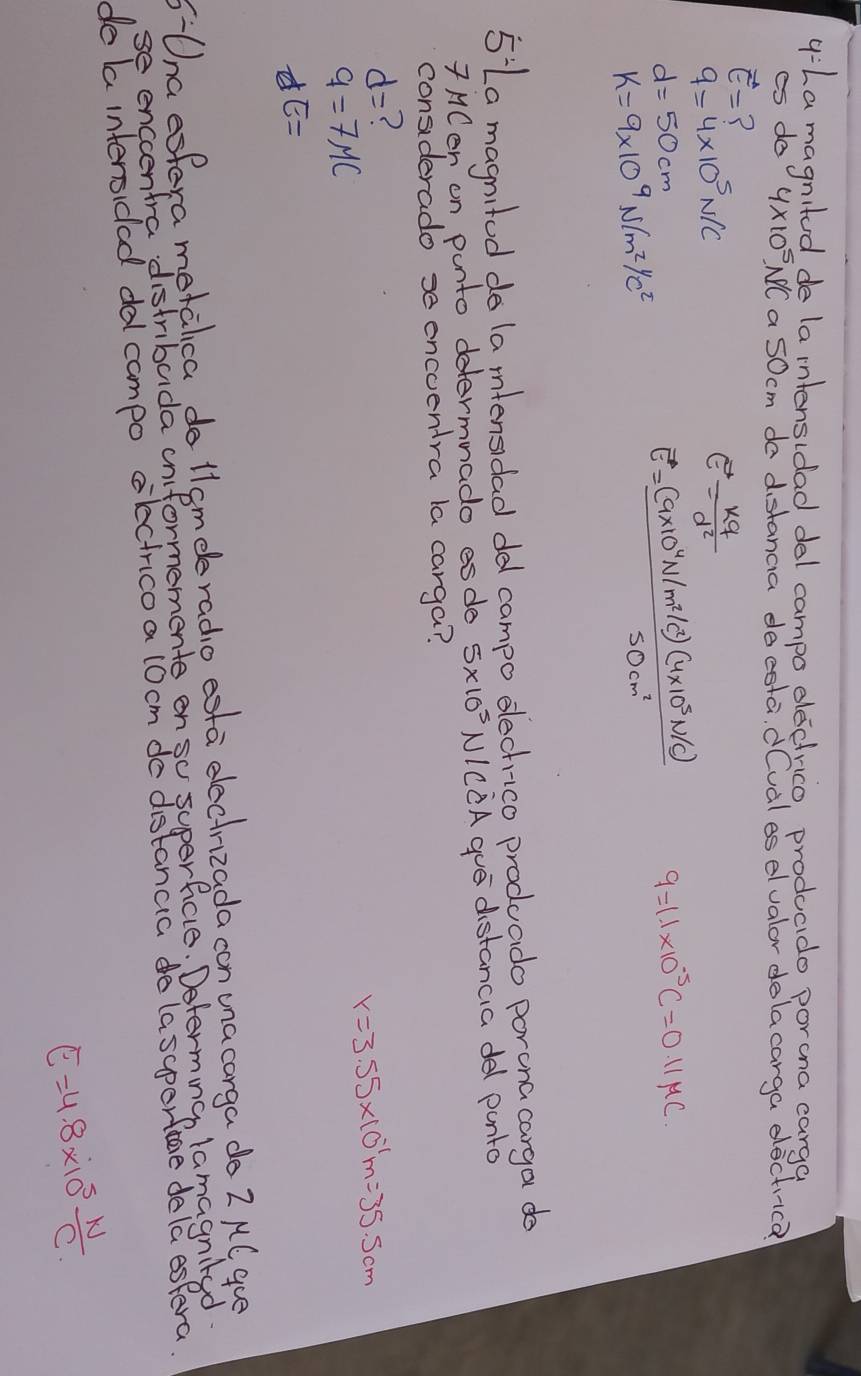 4:-La magnitud de la intensidad del campo eléctrico, producido por una carga
es de 4x10⁵ N/C a 50cm de distancia de está. ¿Cuál es el valor de la carga eléctrica?
E⃗=?
q=4x10⁵ N/C
d=50cm
K=9x10⁹ N/m²/c²
E⃗=Kq/d²
E⃗=(9x10⁹N/m²/c²)(4x10⁵N/C)
50cm²
q=1.1x10⁻⁵C=0.11 μC.
5:-La magnitud de la intensidad del campo eléctrico producido por una carga de
7 μC en un punto determinado es de 5x10⁵ N/C ¿A qué distancia del punto
considerado se encuentra la carga?
d=?
q=7μC
E=
r=3.55x10⁻¹m=35.5cm
6:-Una esfera metálica de 11cm de radio está electrizada con una carga de 2 μC que
se encuentra distribuida uniformemente en su superficie. Determina la magnitud
de la intensidad del campo eléctrico a 10cm de distancia de la superficie de la esfera.
E=4.8x10⁵ N/C.